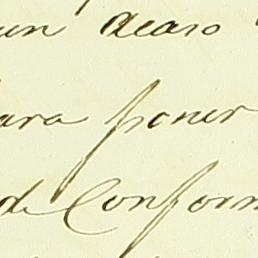 un Acaso
ara poner
de Conform